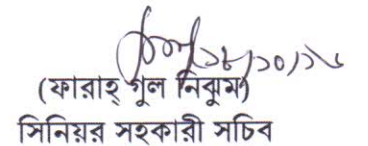 ১৮/১০/১৬
(ফারাহ্ গুল নিঝুম)
সিনিয়র সহকারী সচিব